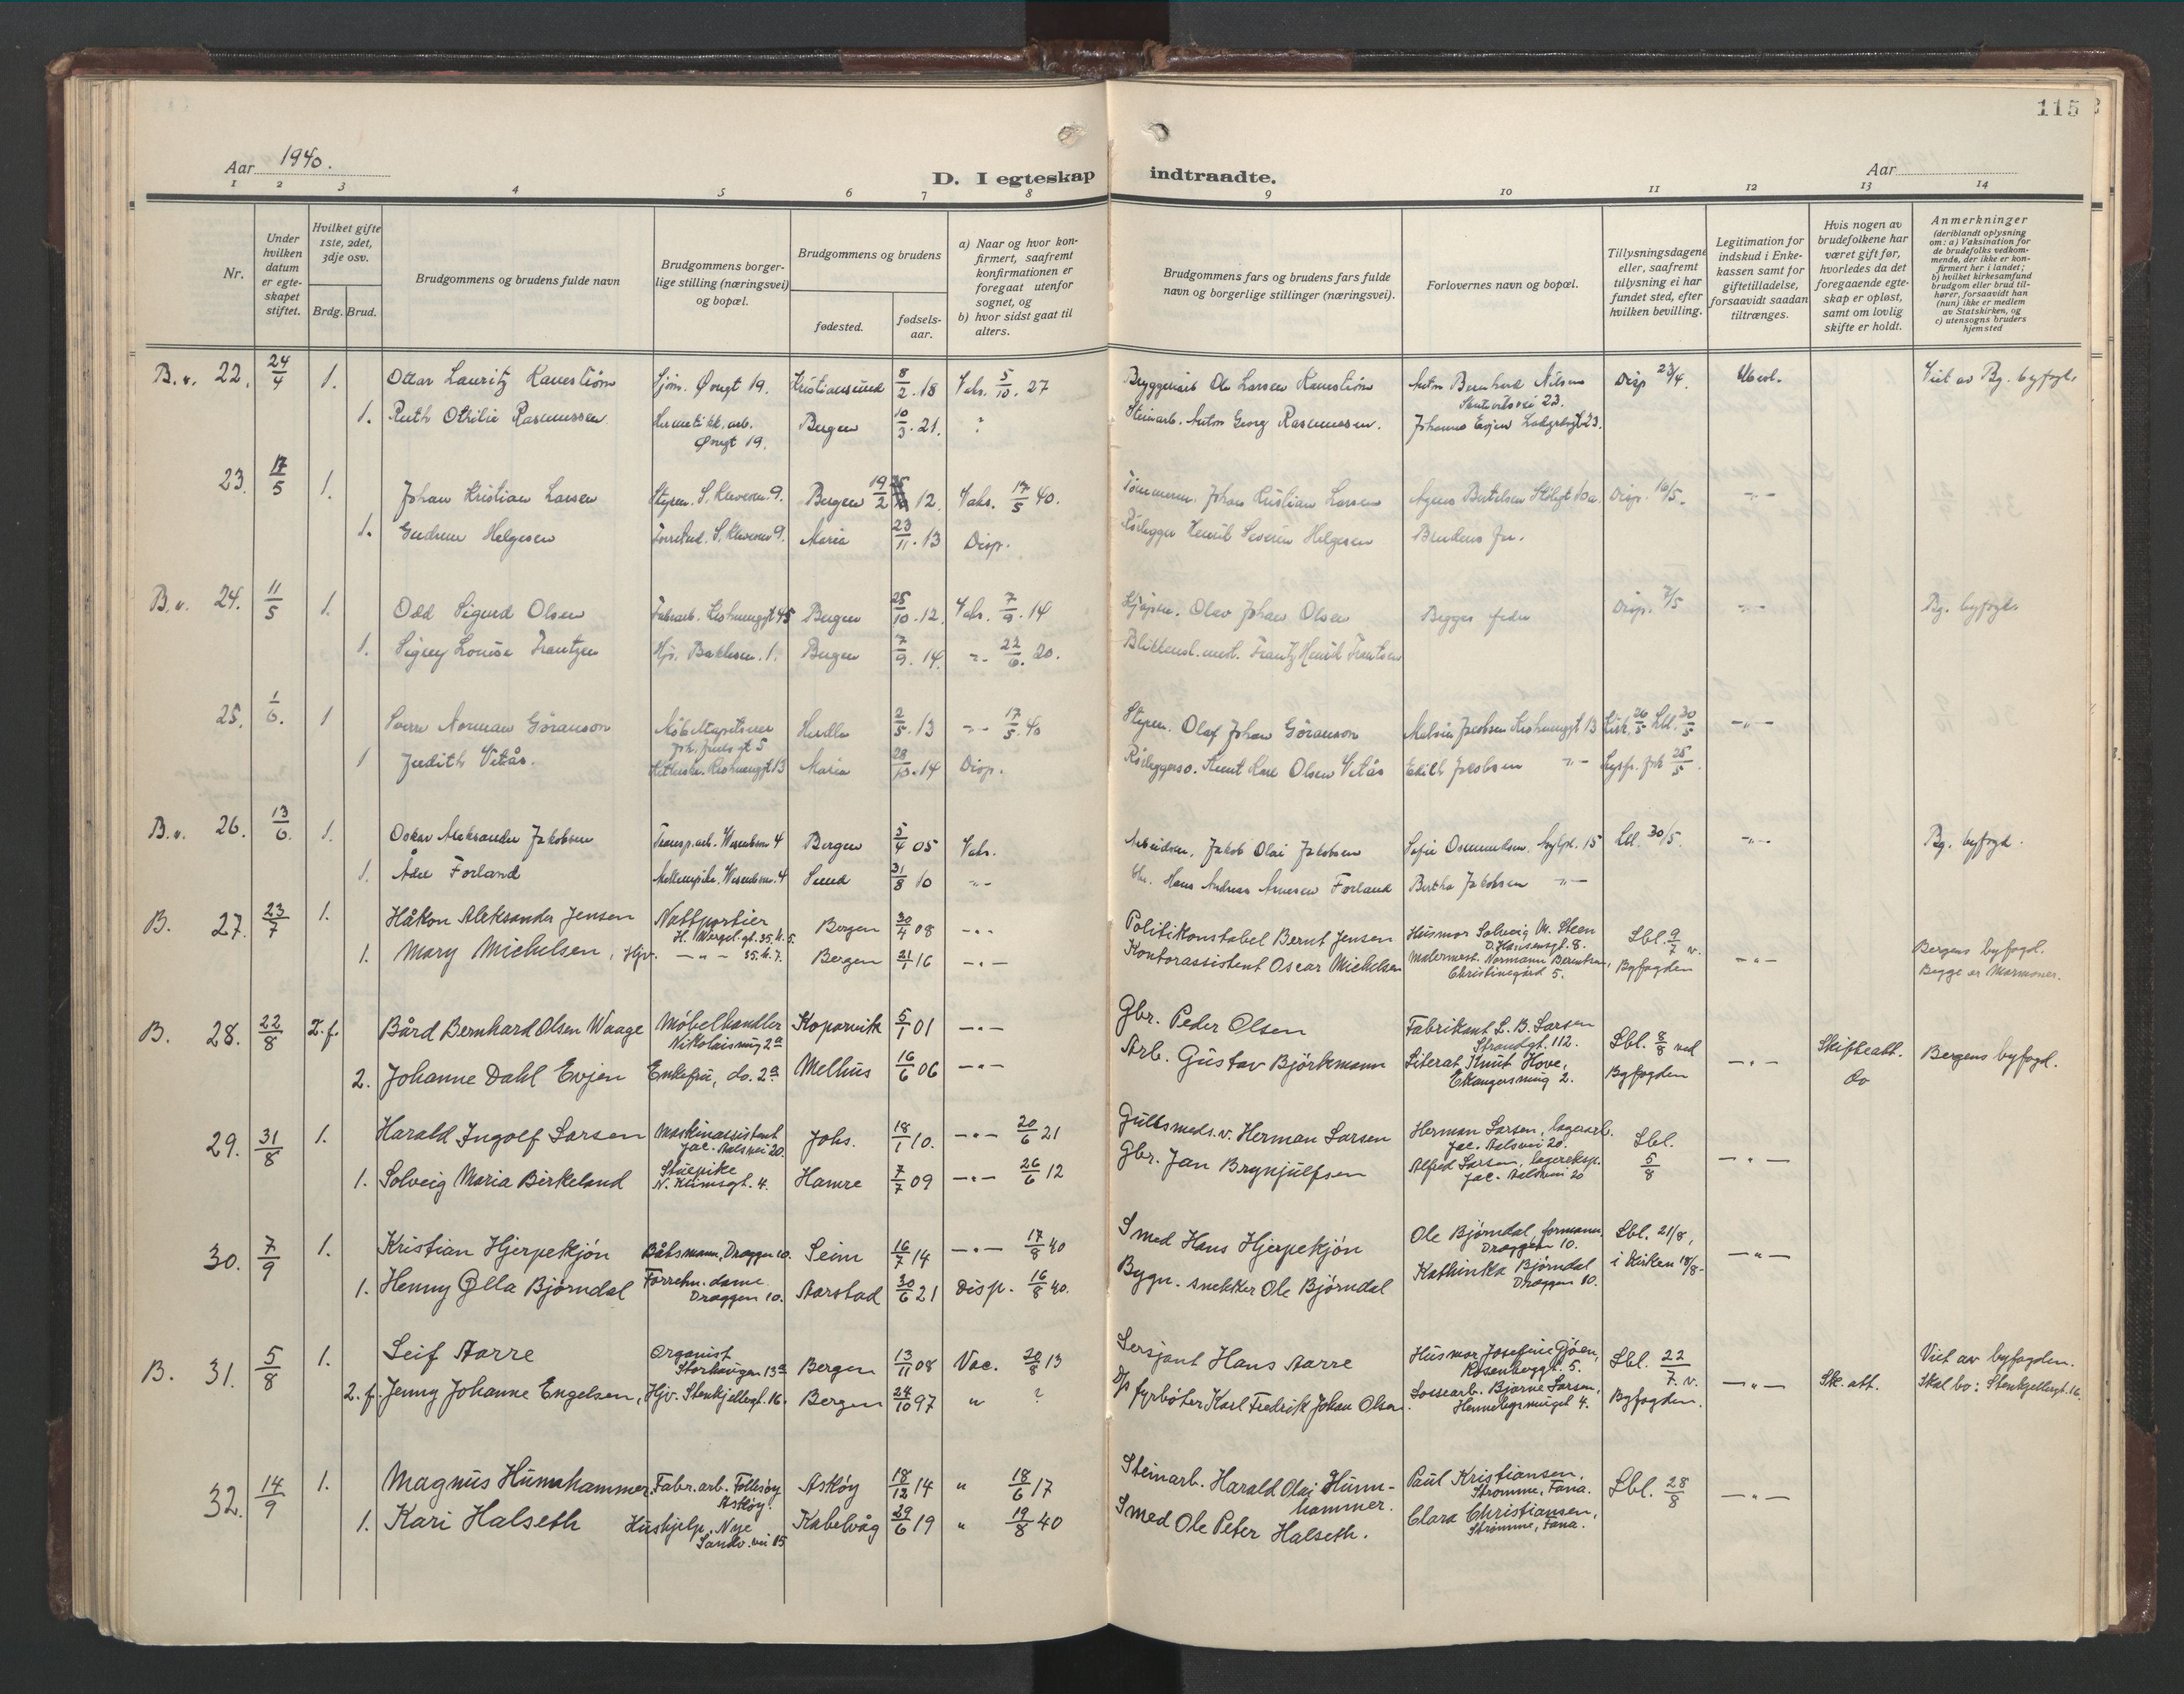 115
Aar 1940.
D. I egteskap indtraadte.
Aar
1 2 3 4 5 6 7 8 9 10 11 12 13 14
Nr.
Under hvilken datum er egteskapet stiftet.
Hvilket gifte 1ste, 2det, 3dje osv.
Brdg. Brud.
Brudgommens og brudens fulde navn
Brudgommens borgerlige stilling (næringsvei) og bopæl.
Brudgommens og brudens
fødested.
fødselsaar.
a) Naar og hvor konfirmert, saafremt konfirmationen er foregaat utenfor sognet, og
b) hvor sidst gaat til alters.
Brudgommens fars og brudens fars fulde navn og borgerlige stillinger (næringsvei).
Forlovernes navn og bopæl.
Tillysningsdagene eller, saafremt tillysning ei har fundet sted, efter hvilken bevilling.
Legitimation for indskud i Enkekassen samt for giftetilladelse, forsaavidt saadan tiltrænges.
Hvis nogen av brudefolkene har været gift før, hvorledes da det foregaaende egteskap er opløst, samt om lovlig skifte er holdt.
Anmerkninger (deriblandt oplysning om: a) Vaksination for de brudefolks vedkommende, der ikke er konfirmert her i landet; b) hvilket kirkesamfund brudgom eller brud tilhører, forsaavidt han (hun) ikke er medlem av Statskirken, og c) utensogns bruders hjemsted
B.v. 22. 24/4 1. Ottar Lauritz Kanestrøm Sjøm. Øvregt 19. Kristiansund 8/2.18 Vaks. 5/10.27 Bryggeriarb Ole Larsen Kanestrøm Anton Bernhard Nilsen Disp 23/4. Viet av Bg. byfogd.
1. Ruth Othilie Rasmussen Hermetikk.arb. Øvregt 19. Bergen 10/3.21. ? Steinarb. Anton Georg Rasmussen.
23. 17/5 1. Johan Kristian Larsen Bergen 19/2 12. Vaks. 17/5 40. Johan Kristian Larsen Disp. 16/5. -"-
1. Gudrun Helgesen Maria 23/11.13 Disp. Rørlegger Henrik Severin Helgesen Brudens far.
B.v. 24. 11/5 1. Odd Sigurd Olsen Bergen 25/10.12. Vaks. 7/9.14 Olav Johan Olsen Begges fedre Disp. 7/5 -"- Bg. byfogd.
1. Signy Louise Frantzen Bergen 7/9.14. -"- 22/6.20. Frantz Henrik Frantzen
25. 1/6. 1 Sverre Norman Göranson Herdla 2/5.13 -"- 17/5.40 Styrm. Olaf Johan Göranson -"-
1 Judith Vetås. Maria 28/10.14 Disp. Knut Karl Olsen Vetås Edith Jacobsen -"-
B.v. 26. 13/6. 1. Oskar Aleksander Jakobsen Transp.arb. Bergen 5/4 05 Vaks. Arbeidsm. Jakob Olai Jakobsen Lbl. 30/5. -"- Bg. byfogd.
1. Åse Forland Sund 31/8 10 -"- Gbr. Hans Andreas Arnesen Forland Bertha Jakobsen -"-
B. 27. 23/7 1. Håkon Aleksander Jensen Nattportier H. Wergel.gt. 35. Bergen 30/4 08 -"- Politikonstabel Bernt Jensen Husmor Solveig M. Steen D. Hansensgt. 8. Lbl. 9/7 v. Byfogden -"- Bergens byfogd. Begge er Mormoner.
1. Mary Michelsen, Hjv. -"- Bergen 21/1 16 -"- Kontorassistent Oscar Michelsen Malermest. Normann Berentsen, Christinegård 5.
B. 28. 22/8 2.f. Bård Bernhard Olsen Waage Møbelhandler Nikolaismug 2a Kopervik 5/1 01 -"- Gbr. Peder Olsen Fabrikant L. B. Larsen Strandgt. 112. Lbl. 8/8 ved Byfogden -"- Skifteatt. Do Bergens byfogd.
2. Johanne Dahl Evjen Enkefru, do. 2a Melhus 16/6 06 -"- Arb. Gustav Björkmann Literat Knut Hove, Ekangersmug 2.
29. 31/8 1. Harald Ingolf Larsen Maskinassistent Jac. Aalsvei 20. Johs. 18/1 10. -"- 20/6 21 Gullsmeds.v. Herman Larsen Herman Larsen, lagerarb. Jac. Aalsvei 20. Lbl. 5/8 -"-
1. Solveig Maria Birkeland Stuepike Hamre 7/7 09 -"- 26/6 12 Gbr. Jan Brynjulfsen Alfred Larsen, lagereksp. Jac. Aalsvei 20
30. 7/9 1. Kristian Hjerpekjøn Båtsmann, Dræggen 10. Seim 16/7 14 -"- 17/8 40 Smed Hans Hjerpekjøn Ole Bjørndal, formann, Dræggen 10. Lbl. 21/8, i Kirken 18/8- -"-
1. Henny Ølla Bjørndal Forretn.dame Dræggen 10. Aarstad 30/6 21 Disp. 16/8 40. Bygn.snekker Ole Bjørndal Kathinka Bjørndal Dræggen 10.
B. 31. 5/8 1. Leif Aarre Organist Storhaugen 13a Bergen 13/11 08 Vac. 20/8 13 Sersjant Hans Aarre Husmor Josefine Gjøen, Rosenberggt. 5. Lbl. 22/7. v. Byfogden. -"- Sk. att. Viet av byfogden. Skal bo: Stenkjellergt. 16.
2.f. Jenny Johanne Engelsen, Hjv. Stenkjellergt. 16. Bergen 24/10 97 " ? Fyrbøter Karl Fredrik Johan Olsen Lossearb. Bjarne Larsen, 4.
32. 14/9 1. Magnus Hummhammer Fabr.arb. Follesøy Askøy. Askøy 18/12 14 " 18/6 17 Steinarb. Harald Olai Hummhammer. Paul Kristiansen, Strømme, Fana. Lbl. 28/8 -"-
1. Kari Halseth Hushjelp. Nye Sandv.vei 15 Kabelvåg 29/6 19 " 19/8 40 Smed Ole Peter Halseth. Clara Christiansen, Strømme, Fana.